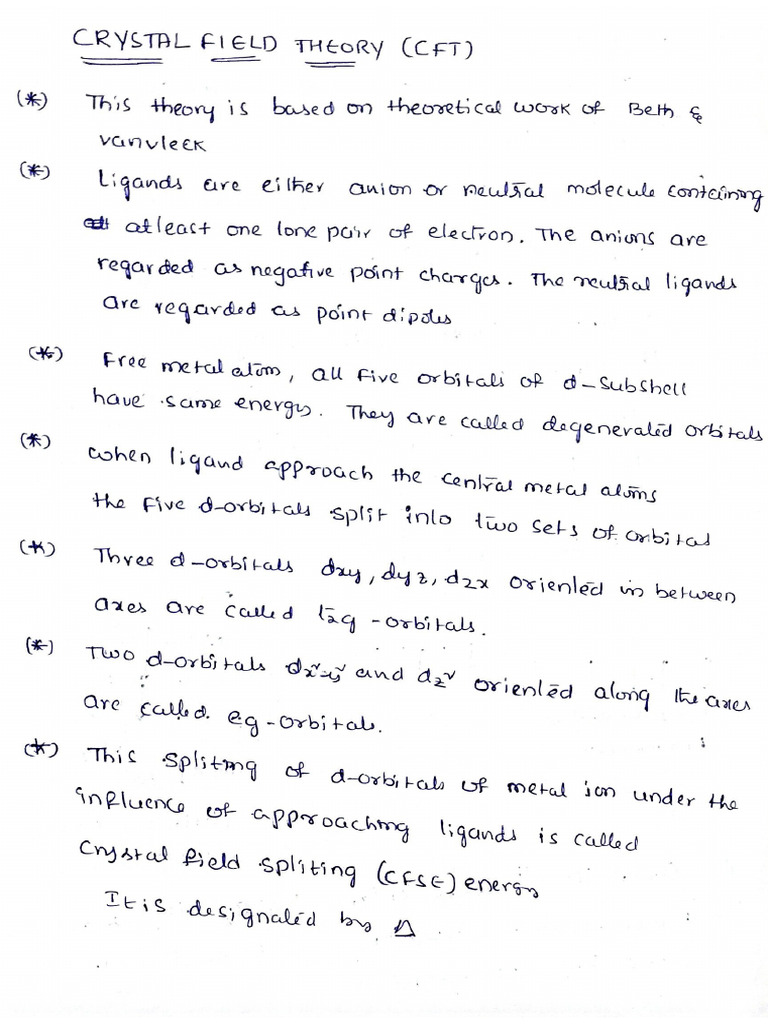 CRYSTAL FIELD THEORY (CFT)
(*) This theory is based on theoretical work of Beth &
vanvleek
(*) Ligands are either anion or neutral molecule containing
atleast one lone pair of electron. The anions are
regarded as negative point charges. The neutral ligands
are regarded as point dipoles
(*) Free metal atom, all five orbitals of d-subshell
have same energy. They are called degenerated orbitals
(*) when ligand approach the central metal atoms
the five d-orbitals split into two sets of orbital
(*) Three d-orbitals dxy, dyz, dzx oriented in between
axes are called t2g-orbitals.
(*) Two d-orbitals dx²-y² and dz² oriented along the axes
are called eg-orbitals.
(*) This spliting of d-orbitals of metal ion under the
influence of approaching ligands is called
Crystal field spliting (CFSE) energy
It is designated by Δ